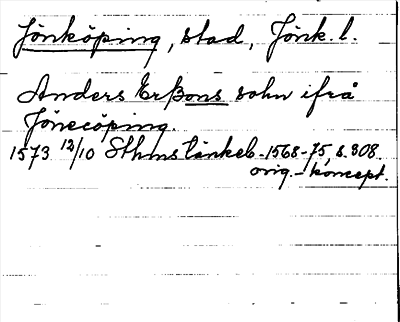 Jönköping, stad, Jönk. l.
Anders Erßons sohn ifrå
Jönecöping.
1573 12/10 Sthms tänkeb. 1568-75, s. 308.
orig. - koncept.